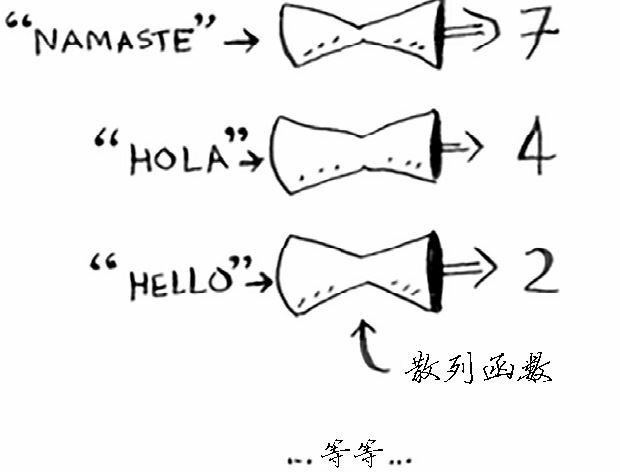 “NAMASTE” → 7
“HOLA” → 4
“HELLO” → 2
散列函数
...等等...